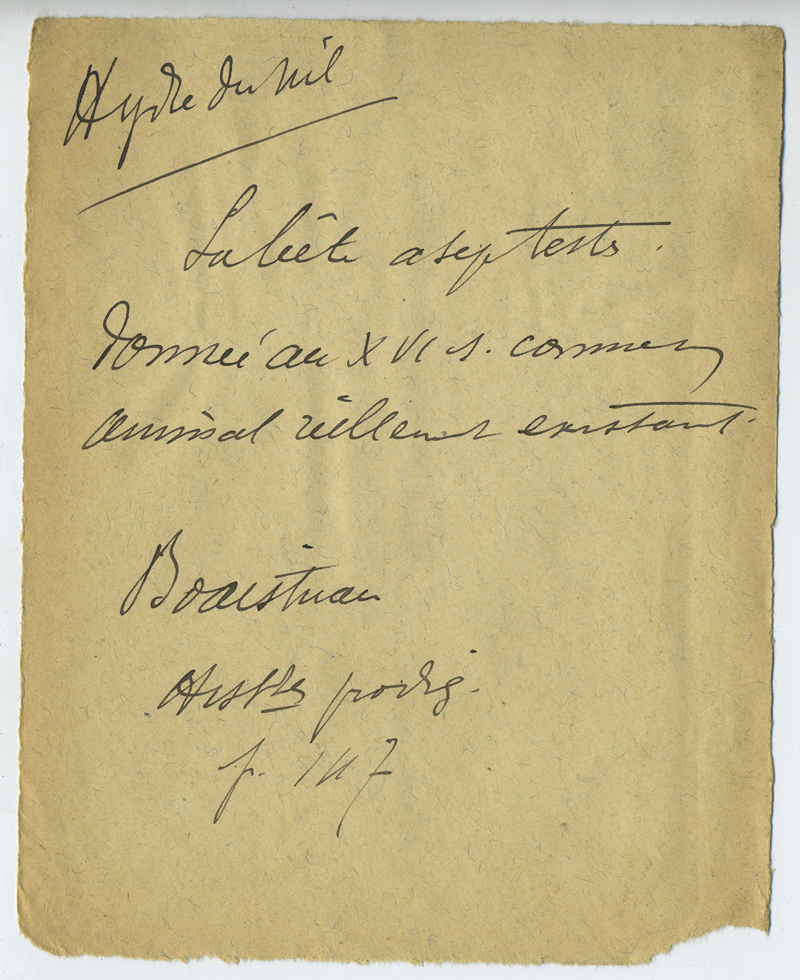 Hydre du Nil
La bête a sept testes.
donnée au XVI s. comme un
animal réellement existant.
Boaistuau
Histres prodig.
p. 147